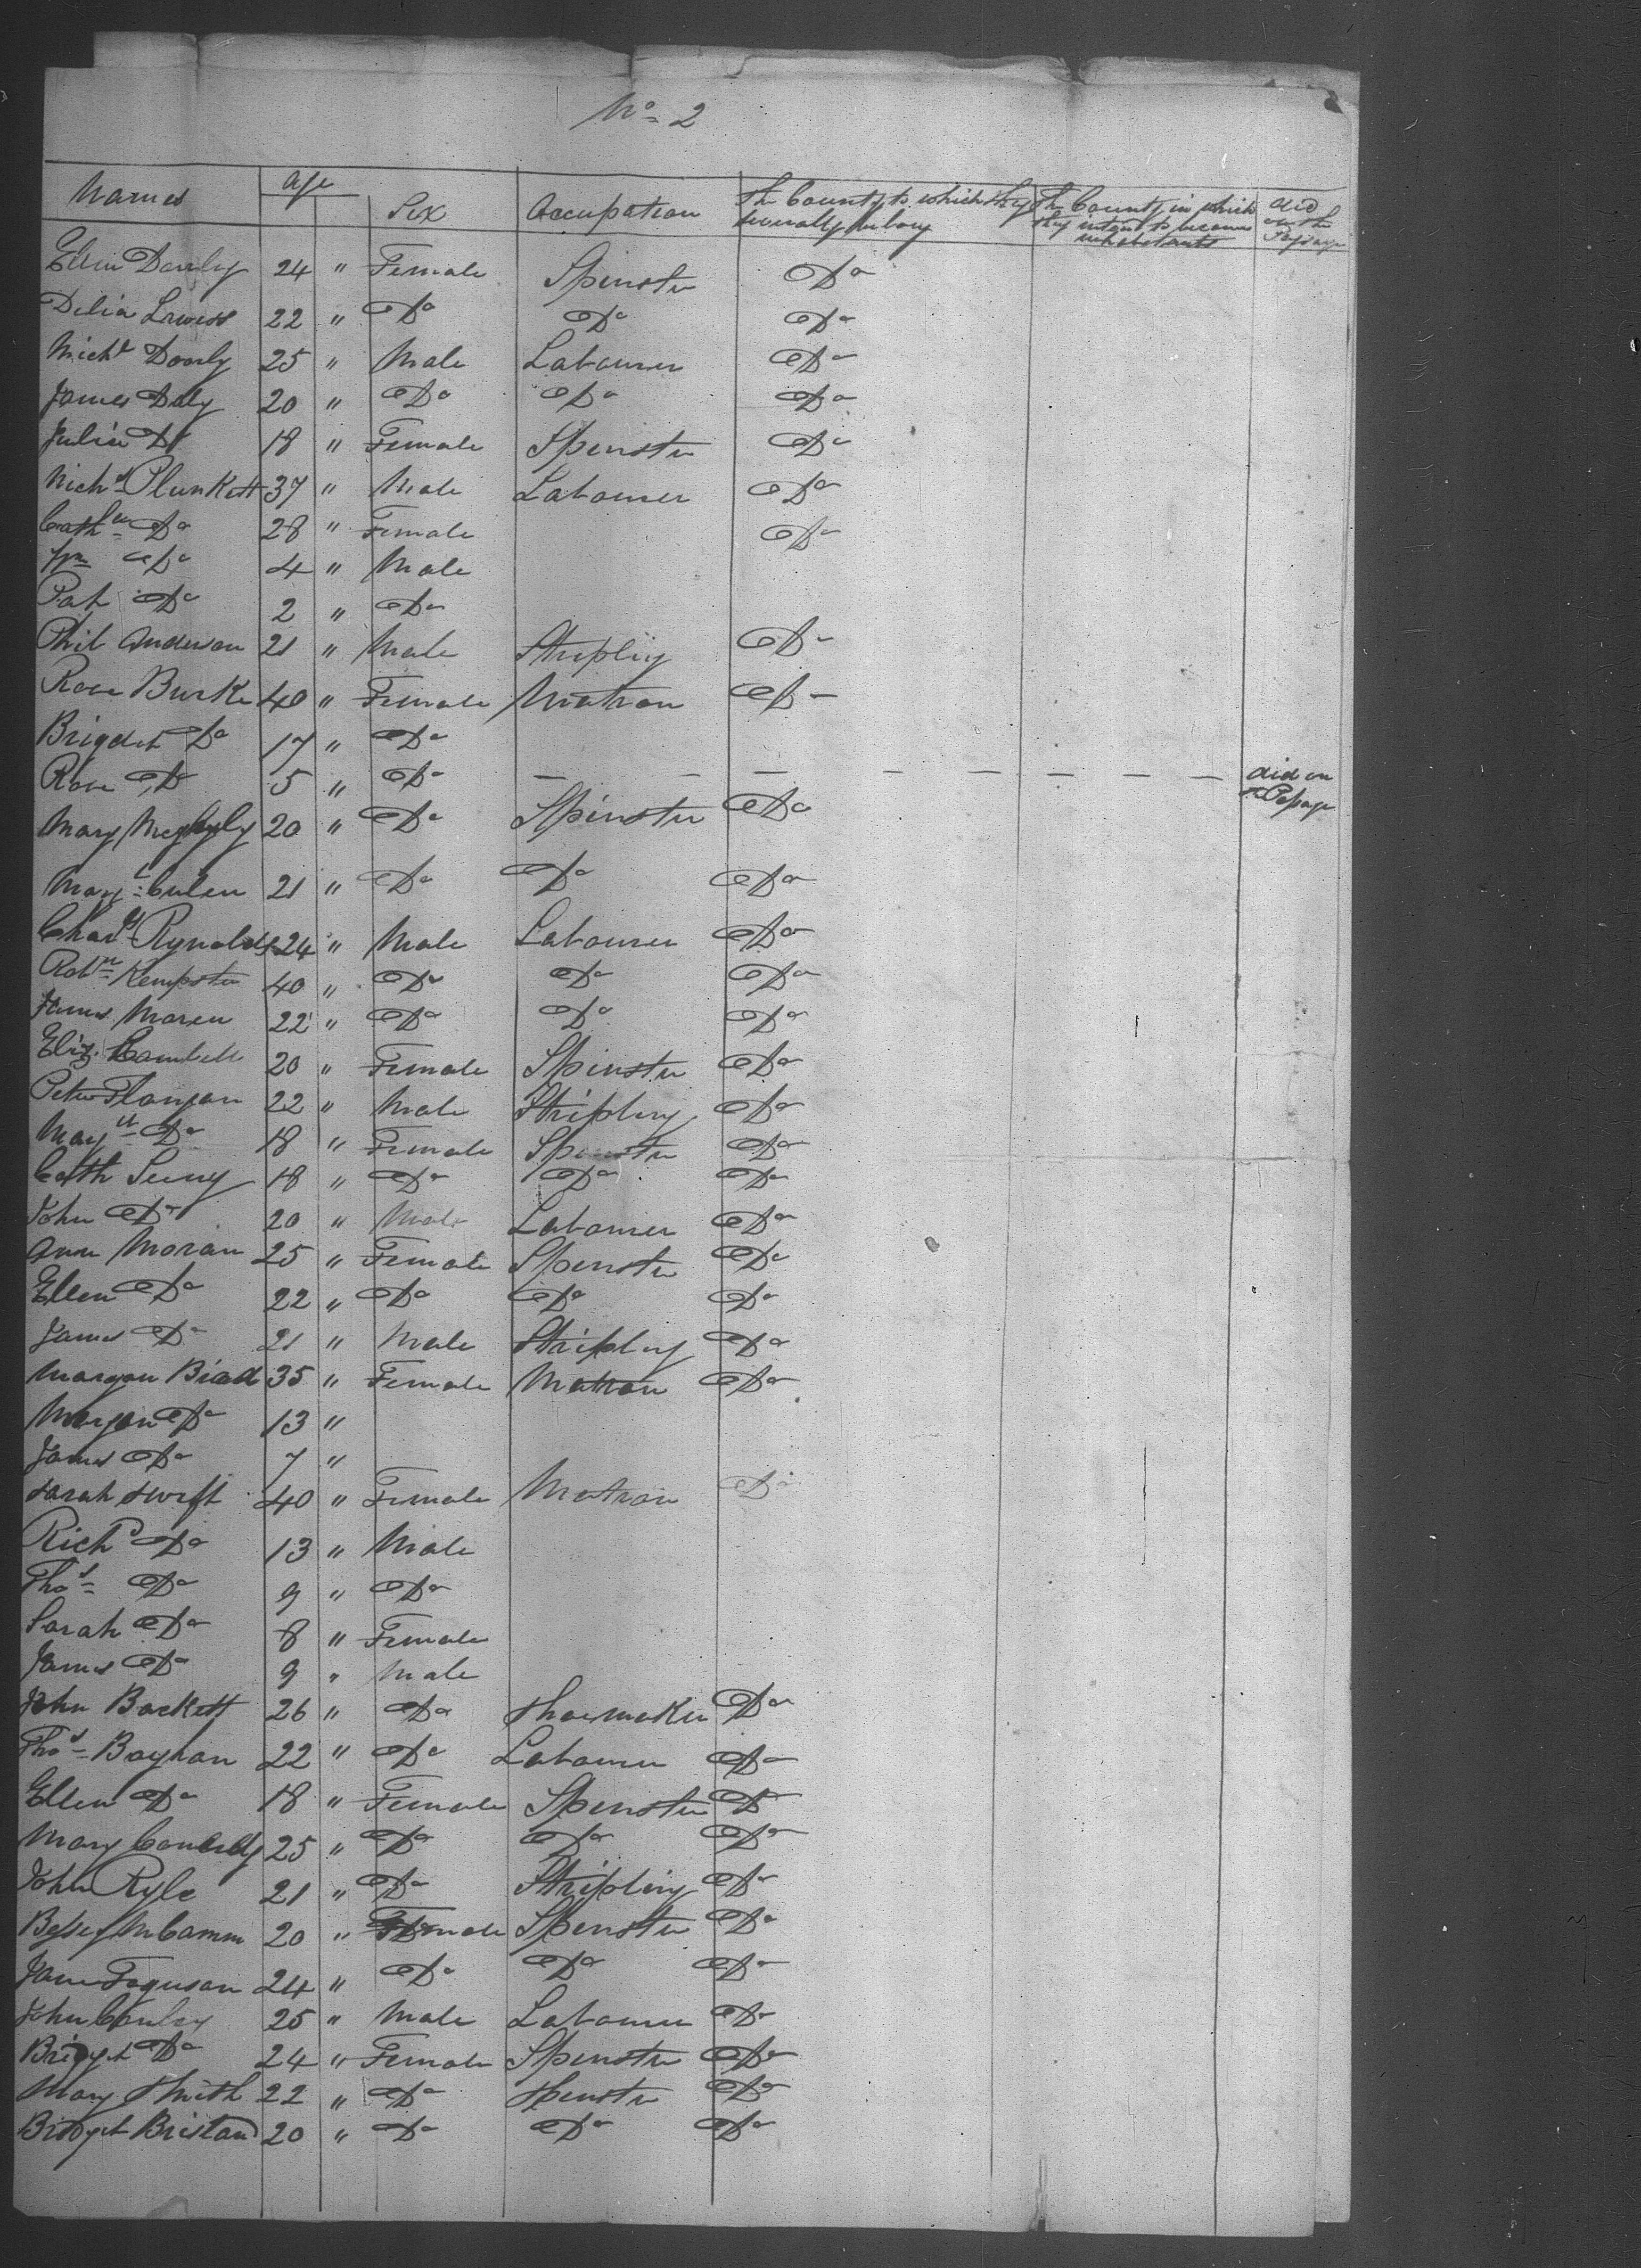 No 2
Names Age Sex Occupation The County to which they severally belong The County in which they intend to become inhabitants died on the Passage
Ellen Donnly 24 " Female Spinster Do
Delia 22 " Do Do Do
Michl Donly 25 " Male Labourer Do
James Daly 20 " Do Do Do
Julia Do 18 " Female Spinster Do
Nichs Plunkett 37 " Male Labourer Do
Cathn Do 28 " Female Do
Do 4 " Male
Pat Do 2 " Do
Phil Anderson 21 " Male Stripling Do
Rose Burke 40 " Female Matron Do
Brigdet Do 17 " Do
Rose Do 5 " Do — — — — — — — died on Passage
Mary 20 " Do Spinster Do
Margt Culen 21 " Do Do Do
Chars Rynolds 24 " Male Labourer Do
Kempster 40 " Do Do Do
James Moren 22 " Do Do Do
Eliz. Cambell 20 " Female Spinster Do
Peter Flangan 22 " Male Stripling Do
Do 18 " Female Spinster Do
Cath 18 " Do Do Do
John Do 20 " Male Labourer Do
Ann Moran 25 " Female Spenster Do
Ellen Do 22 " Do Do Do
James Do 21 " Male Stripling Do
Margan Biad 35 " Female Matron Do
Margan Do 13 "
James Do 7 "
Sarah Swift 40 " Female Matron Do
Richd Do 13 " Male
Thos Do 9 " Do
Sarah Do 8 " Female
James Do 9 " Male
John Backett 26 " Do Shoemaker Do
Thos Boylan 22 " Do Labourer Do
Ellen Do 18 " Female Spenster Do
Mary 25 " Do Do Do
John Ryle 21 " Do Stripling Do
Betsey McCamm 20 " Female Spenster Do
Jane Foguson 24 " Do Do Do
John Conley 25 " Male Labourer Do
Bridgt Do 24 " Female Spenster Do
Mary Smith 22 " Do Spenster Do
Bridget Bristan 20 " Do Do Do